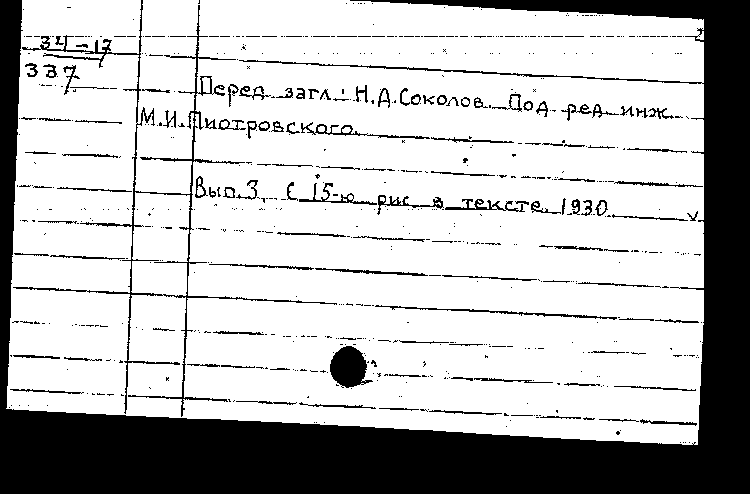 2
34-17
337
Перед загл.: Н.Д.Соколов. Под ред. инж.
М.И.Пиотровского.
Вып.3. С 15-ю рис. в тексте. 1930. v